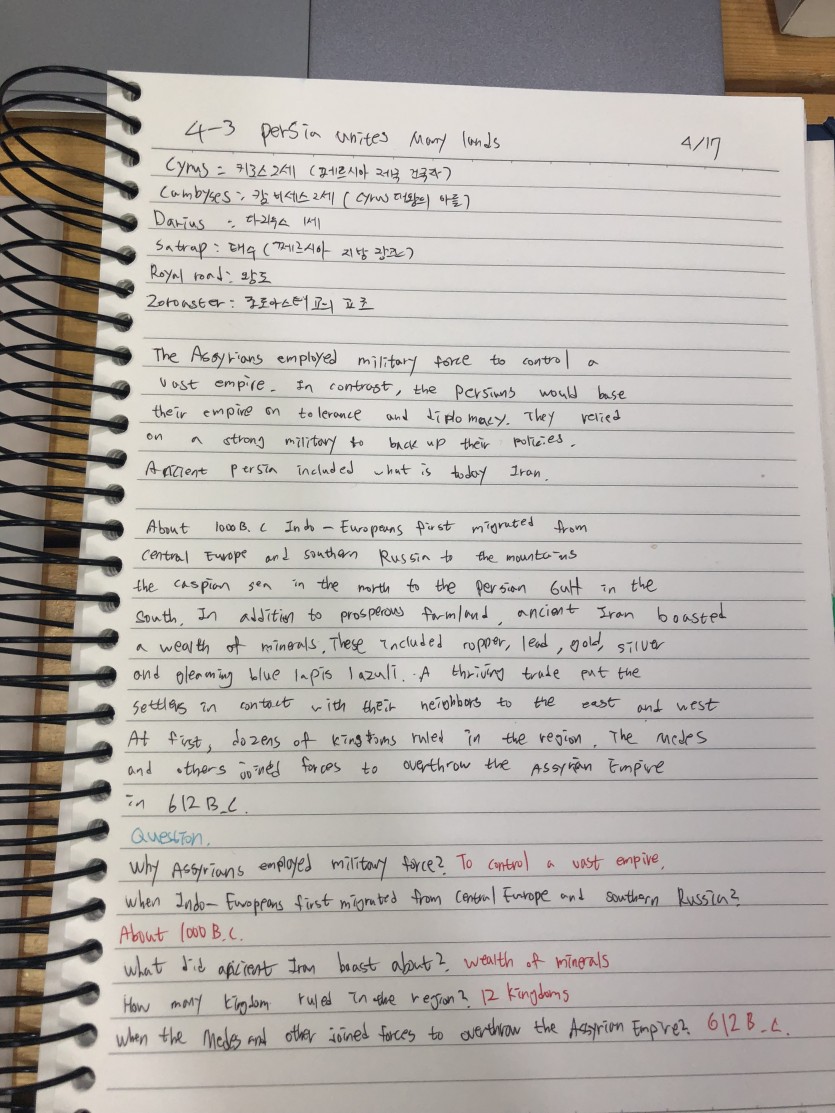 4-3 Persia unites Many lands 4/17
Cyrus = 키로스 2세 (페르시아 제국 건국자)
Cambyses = 캄비세스 2세 (Cyrus 대왕의 아들)
Darius = 다리우스 1세
Satrap : 태수 (페르시아 지방 장관)
Royal road : 왕도
Zoroaster : 조로아스터교의 교조
The Assyrians employed military force to control a
vast empire. In contrast, the Persians would base
their empire on tolerance and diplomacy. They relied
on a strong military to back up their policies.
Ancient Persia included what is today Iran.
About 1000 B.C Indo-Europeans first migrated from
Central Europe and southern Russia to the mountains
the caspian sea in the north to the Persian Gulf in the
South. In addition to prosperous farmland, ancient Iran boasted
a wealth of minerals. These included copper, lead, gold, silver
and gleaming blue lapis lazuli. A thriving trade put the
settlers in contact with their neighbors to the east and west
At first, dozens of kingdoms ruled in the region. The Medes
and others joined forces to overthrow the Assyrian Empire
in 612 B.C.
Question.
Why Assyrians employed military force? To control a vast empire.
when Indo-Europeans first migrated from Central Europe and southern Russia?
About 1000 B.C.
what did ancient Iran boast about? wealth of minerals
How many kingdom ruled in the region? 12 kingdoms
When the Medes and other joined forces to overthrow the Assyrian Empire? 612 B.C.